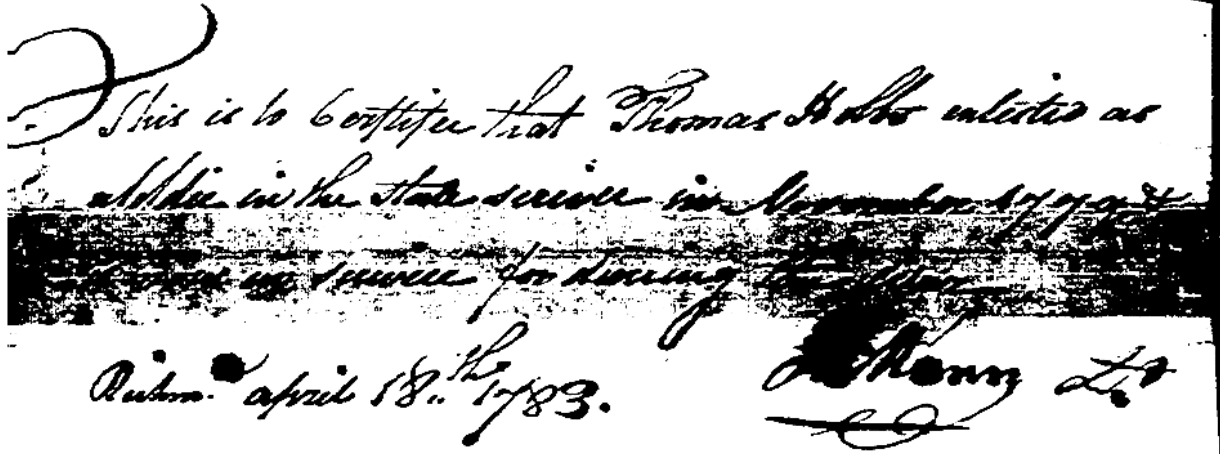 This is to Certifie that Thomas Hobbs enlisted as
a soldier in the State service in November 1779 &
is now in service for during the War
Richm. april 18th 1783.
Lt